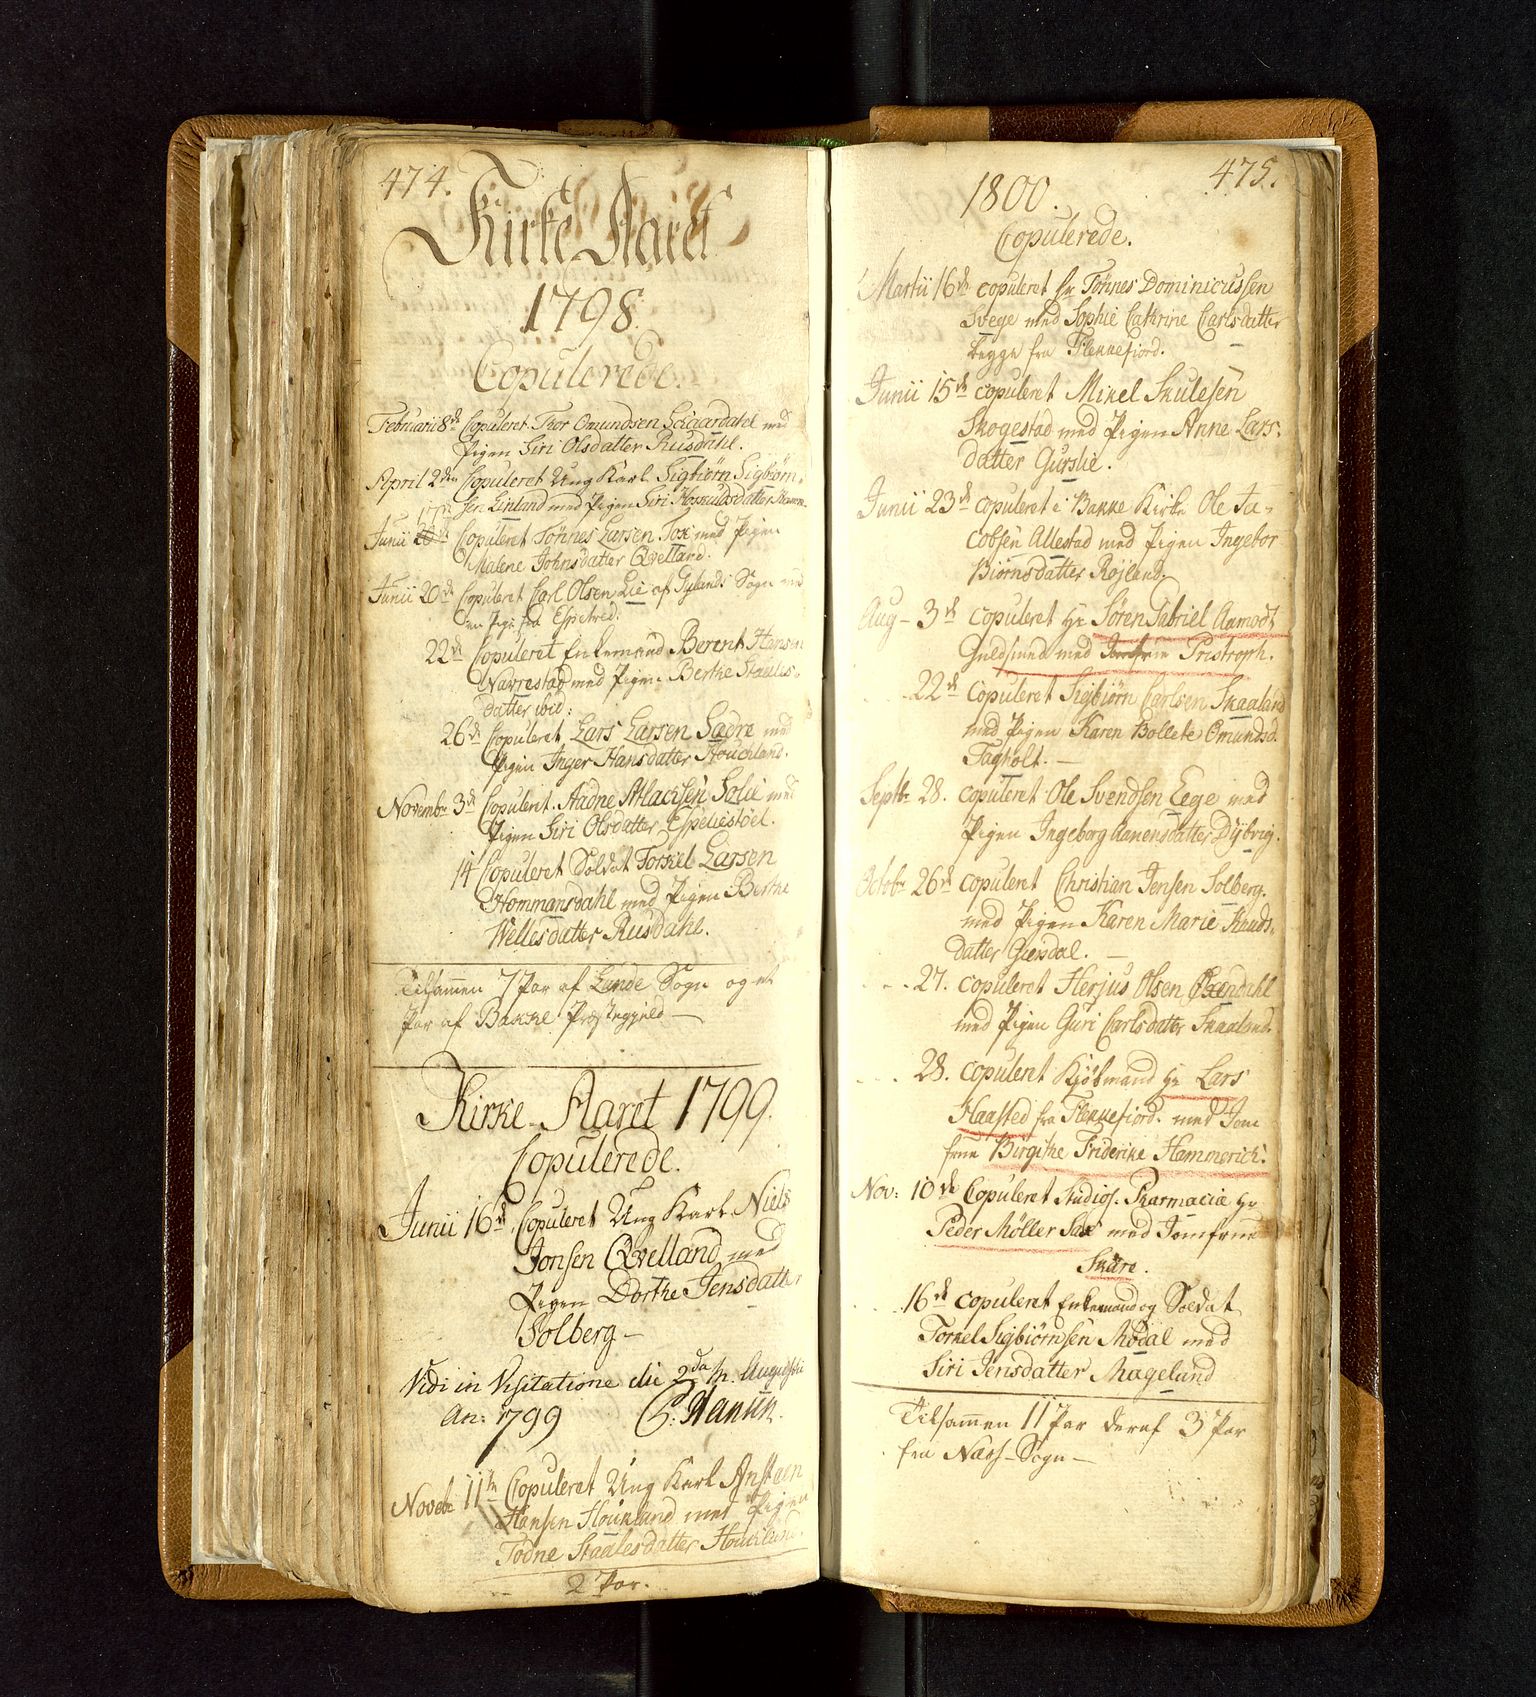 474.
Kirke Aaret
1798.
Copulerede.
Februarii 8de Copuleret Thor Omundsen Schaardahl med
Pigen Siri Olsdatter Rusdahl.
April 2den Copuleret Ung Karl Sigbiørn Sigbiørn-
sen Linland med Pigen Siri
17de
Junii 20de Copuleret Tønnes Larsen Tox med Pigen
Malene Johnsdatter Qvelland.
Junii 20de Copuleret Carl Olsen Lie af Gylands Sogn med
en Pige fra
22de Copuleret Enkemand Berent Hansen
Navrestad med Pigen Berthe Staales-
datter ibid:
26de Copuleret Lars Larsen Ladre med
Pigen Inger Hansdatter Houchland.
Novembr 3de Copuleret Aadne Atlachsen Solie med
Pigen Siri Olsdatter Espeliestøel.
14 Copuleret Soldat Torkiel Larsen
Hommansdahl med Pigen Berthe
Wellesdatter Rusdahl.
Tilsammen 7 Par af Lunde Sogn og et
Par af Bakke Præstegjeld —
Kirke-Aaret 1799.
Copulerede.
Junii 16de Copuleret Ung Karl Niels
Jonsen Qvelland med
Pigen Dorthe Jensdatter
Solberg —
Vidi in Visitatione die 2da m. Augusti
An: 1799 C. Hansen.
Novebr 11te Copuleret Ung Karl Ansteen
Hansen Houkland med Pigen
Todne Staalesdatter Houkland.
2 Par.
475.
1800.
Copulerede.
Martii 16de copuleret hr Tønnes Dominicussen
Svege med Sophie Cathrine Carlsdatter
begge fra Flekkefiord.
Junii 15de copuleret Mikel Skulesen
Skogestad med Pigen Anne Lars-
datter Gurslie.
Junii 23de copuleret i Bakke Kirke Ole Ja-
cobsen Allestad med Pigen Ingebor
Biørnsdatter Røjland.
Aug — 3de copuleret Hr Søren Gabriel Aamodt
Guldsmed med Jomfrue Tristroph.
22de copuleret Sigbiørn Carlsen Skaaland
med Pigen Karen Bollete Omundsd.
Fagholt. —
Septbr 28. copuleret Ole Svendsen Eege med
Pigen Ingeborg Aanensdatter Dybvig.
Octobr 26de copuleret Christian Jensen Solberg.
med Pigen Karen Marie Knuds-
datter Giersdal. —
27. copuleret Herjus Olsen
med Pigen Guri Carlsdatter Skaaland
28. copuleret Kjøbmand Hr Lars
Haasted fra Flekkefiord. med Jom
frue Birgithe Friderike Hammerich.
Nov: 10de Copuleret Studios. Pharmaciæ Hr
Peder Møller Sax med Jomfrue
Skare.
16de copuleret Enkemand og Soldat
Torkel Sigbiørnsen Modal med
Siri Jensdatter Magelund
Tilsammen 11 Par deraf 3 Par
fra Næss-Sogn —